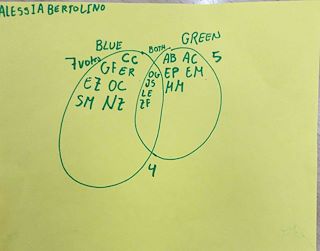 ALESSIA BERTOLINO
BLUE
BOTH
GREEN
7 votes CC
GF ER
EZ OC
SM NZ
OG
JS
LE
ZF
AB AC
EP EM
HM
5
4